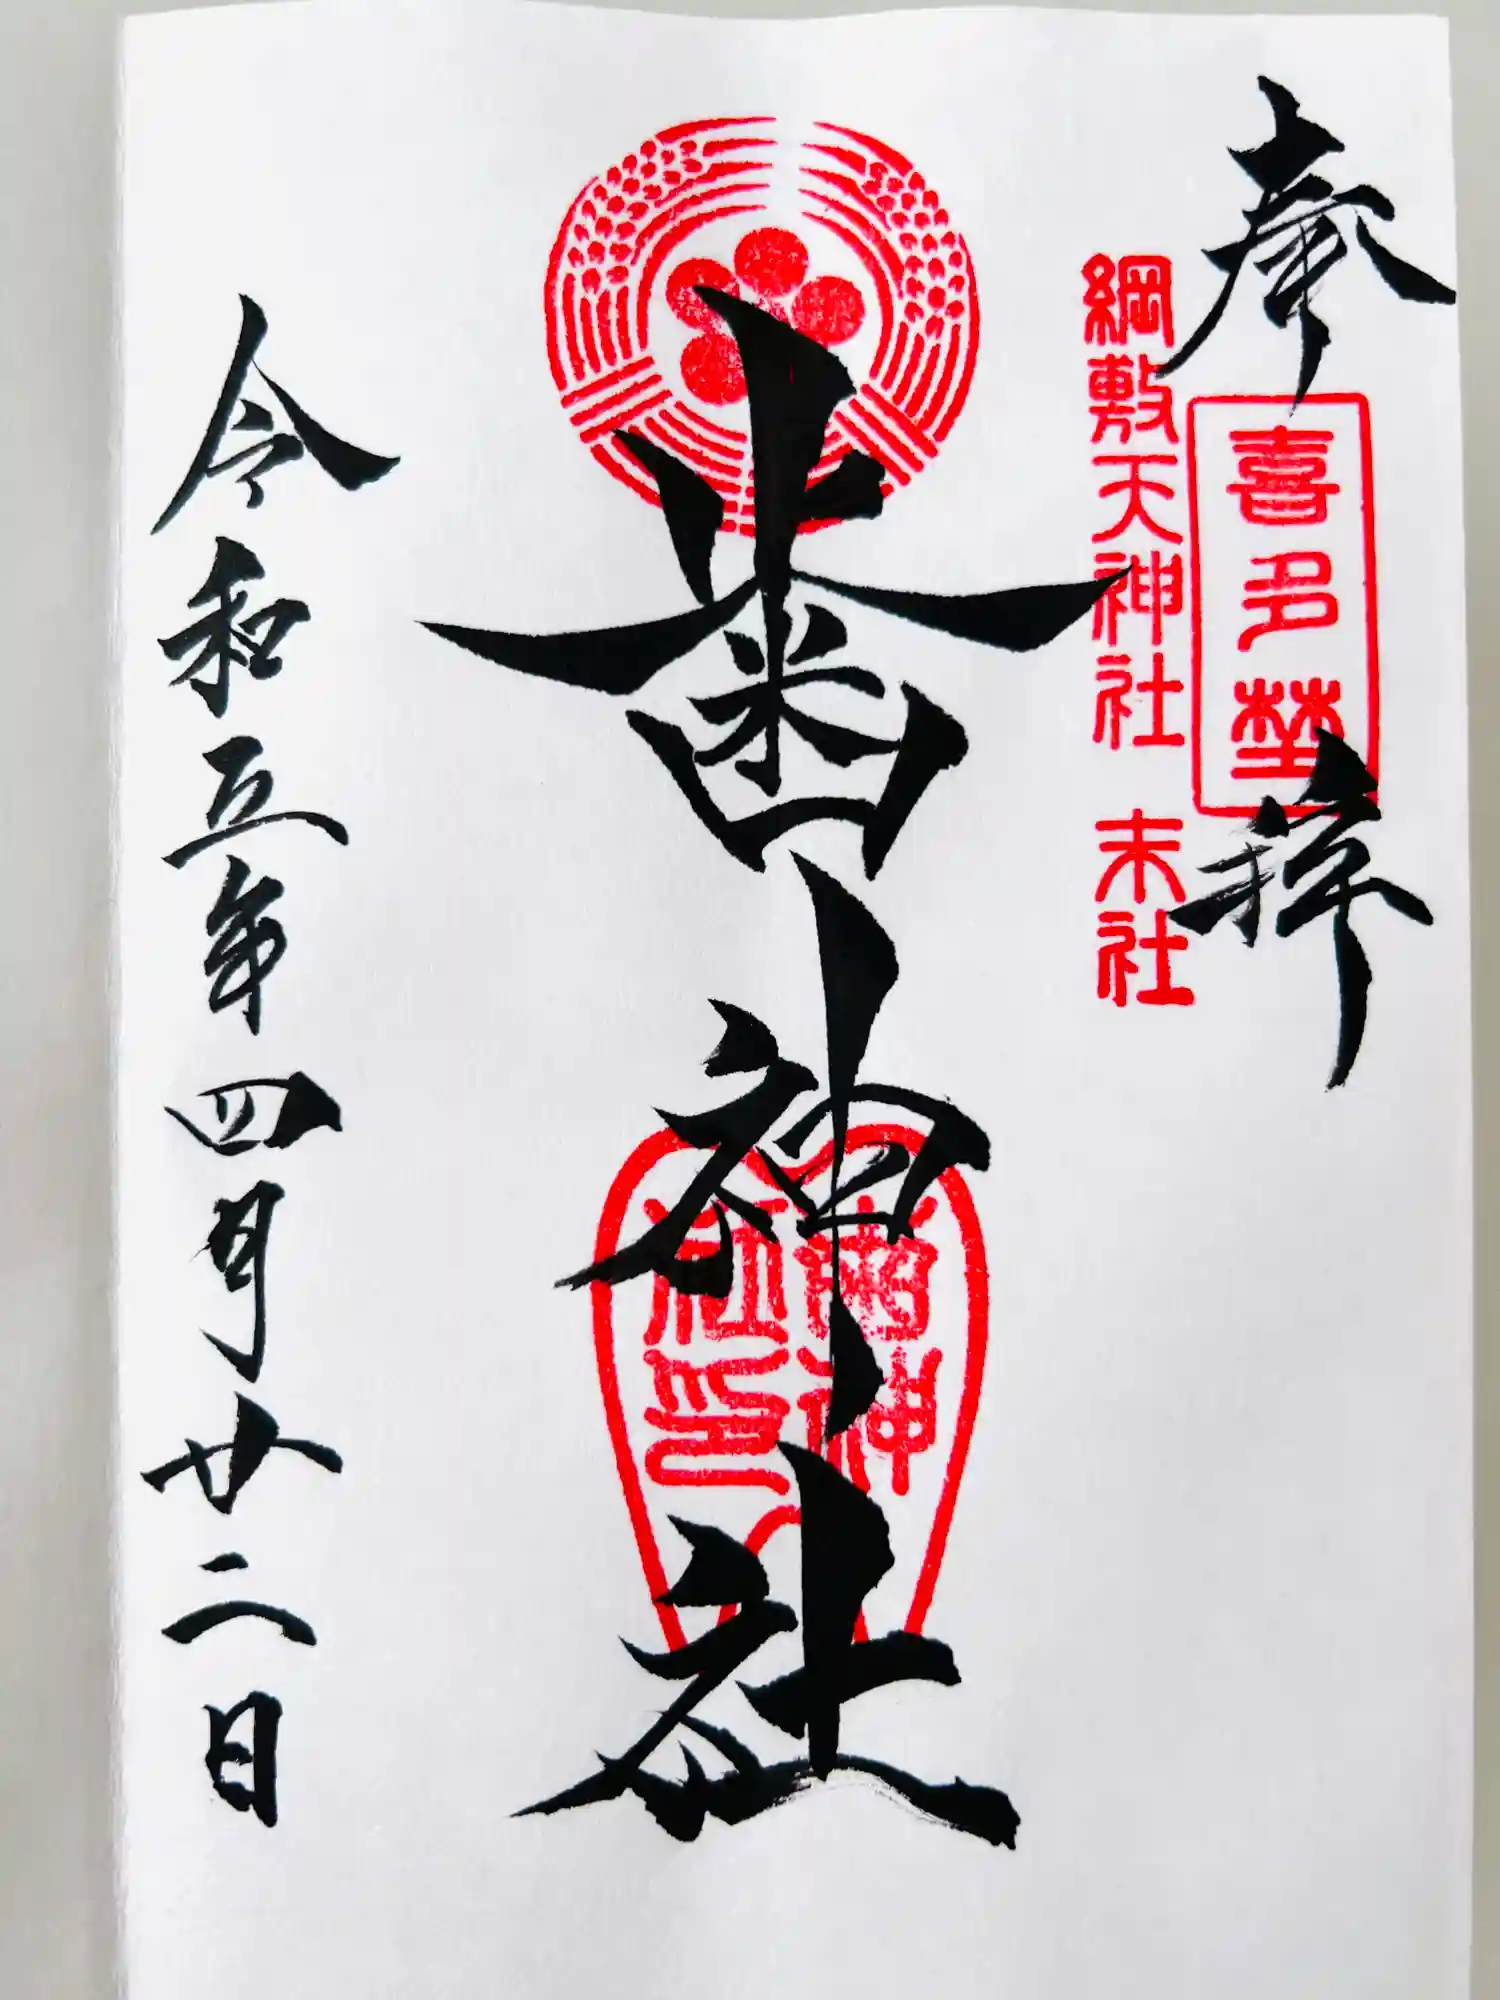 奉拝
喜多埜
綱敷天神社 末社
歯神社
齒神
社印
令和五年四月廿二日